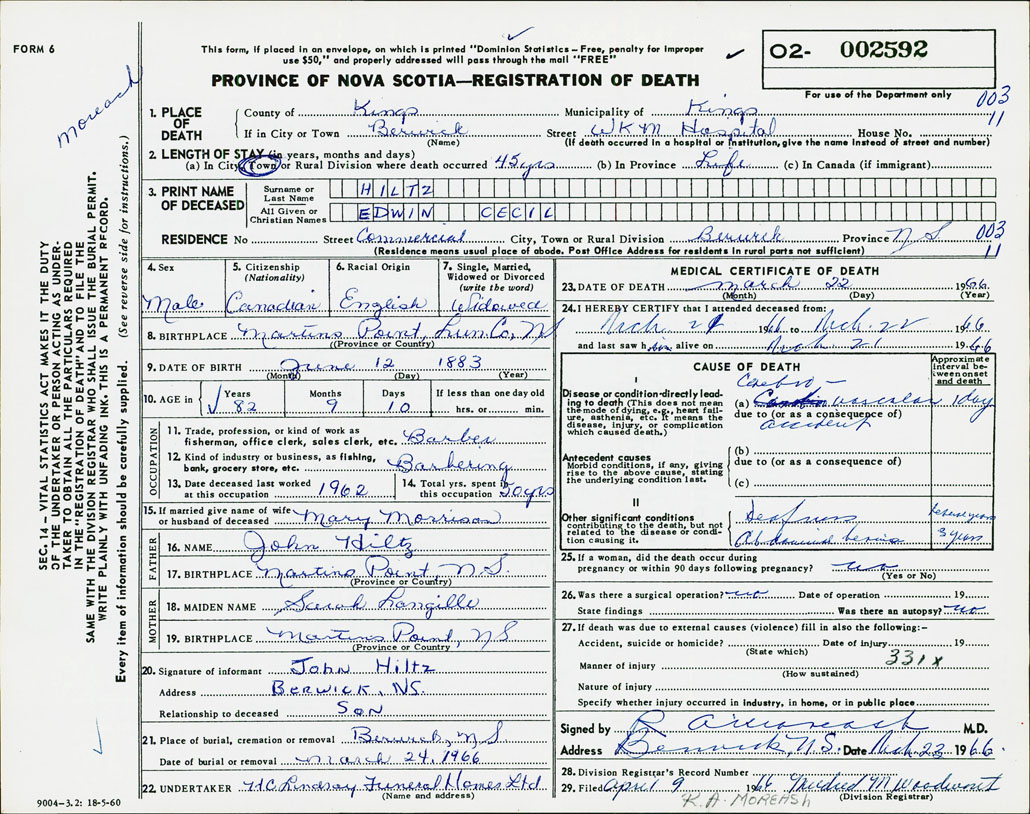 FORM 6
This form, if placed in an envelope, on which is printed "Dominion Statistics – Free, penalty for improper
use $50," and properly addressed will pass through the mail "FREE"
O2- 002592
For use of the Department only
PROVINCE OF NOVA SCOTIA—REGISTRATION OF DEATH
003
11
Moreash
1. PLACE OF DEATH
County of Kings Municipality of Kings
If in City or Town Berwick Street WKM Hospital House No.
(Name) (If death occurred in a hospital or institution, give the name instead of street and number)
2. LENGTH OF STAY (in years, months and days)
(a) In City, Town or Rural Division where death occurred 45 yrs (b) In Province Life (c) In Canada (if immigrant)
3. PRINT NAME OF DECEASED
Surname or Last Name HILTZ
All Given or Christian Names EDWIN CECIL
RESIDENCE No Street Commercial City, Town or Rural Division Berwick Province NS
003
11
(Residence means usual place of abode. Post Office Address for residents in rural parts not sufficient)
4. Sex
Male
5. Citizenship (Nationality)
Canadian
6. Racial Origin
English
7. Single, Married, Widowed or Divorced (write the word)
Widowed
8. BIRTHPLACE Martins Point, Lun. Co, NS
(Province or Country)
9. DATE OF BIRTH June 12 1883
(Month) (Day) (YEAR)
10. AGE in
Years 82
Months 9
Days 10
If less than one day old
hrs. or min.
OCCUPATION
11. Trade, profession, or kind of work as
fisherman, office clerk, sales clerk, etc. Barber
12. Kind of industry or business, as fishing,
bank, grocery store, etc. Barbering
13. Date deceased last worked
at this occupation 1962
14. Total yrs. spent in
this occupation 50 yrs
15. If married give name of wife
or husband of deceased Mary Morrison
FATHER
16. NAME John Hiltz
17. BIRTHPLACE Martins Point, N.S.
(Province or Country)
MOTHER
18. MAIDEN NAME Sarah Langille
19. BIRTHPLACE Martins Point, NS
(Province or Country)
20. Signature of informant John Hiltz
Address BERWICK, NS.
Relationship to deceased SON
21. Place of burial, cremation or removal Berwick, N.S.
Date of burial or removal March 24, 1966
22. UNDERTAKER H.C. Lindsay Funeral Homes Ltd
(Name and address)
9004-3.2: 18-5-60
MEDICAL CERTIFICATE OF DEATH
23. DATE OF DEATH March 22 1966
(Month) (Day) (Year)
24. I HEREBY CERTIFY that I attended deceased from:
Mch. 21 1966 to Mch. 22 1966
and last saw him alive on Mch 21 1966
CAUSE OF DEATH
Approximate interval between onset and death
I
Disease or condition directly leading to death (This does not mean the mode of dying, e.g., heart failure, asthenia, etc. It means the disease, injury, or complication which caused death.)
Cerebro-
(a) vascular 1 day
due to (or as a consequence of)
accident
Antecedent causes
Morbid conditions, if any, giving rise to the above cause, stating the underlying condition last.
(b)
due to (or as a consequence of)
(c)
II
Other significant conditions
contributing to the death, but not related to the disease or condition causing it.
Deafness several years
Abdominal hernia 3 years
25. If a woman, did the death occur during
pregnancy or within 90 days following pregnancy? no
(Yes or No)
26. Was there a surgical operation? no Date of operation 19
State findings Was there an autopsy? no
27. If death was due to external causes (violence) fill in also the following:–
Accident, suicide or homicide? Date of injury 19
(State which)
331x
Manner of injury
(How sustained)
Nature of injury
Specify whether injury occurred in industry, in home, or in public place
Signed by R A Moreash M.D.
Address Berwick, N.S. Date Mch 23 1966
28. Division Registrar's Record Number
29. Filed April 9 1966 Mildred M Woodworth
(Division Registrar)
R.A. MOREASH
SEC. 14— VITAL STATISTICS ACT MAKES IT THE DUTY
OF THE UNDERTAKER OR PERSON ACTING AS UNDER-
TAKER TO OBTAIN ALL THE PARTICULARS REQUIRED
IN THE "REGISTRATION OF DEATH" AND TO FILE THE
SAME WITH THE DIVISION REGISTRAR WHO SHALL ISSUE THE BURIAL PERMIT.
WRITE PLAINLY WITH UNFADING INK. THIS IS A PERMANENT RECORD.
Every item of information should be carefully supplied. (See reverse side for instructions.)